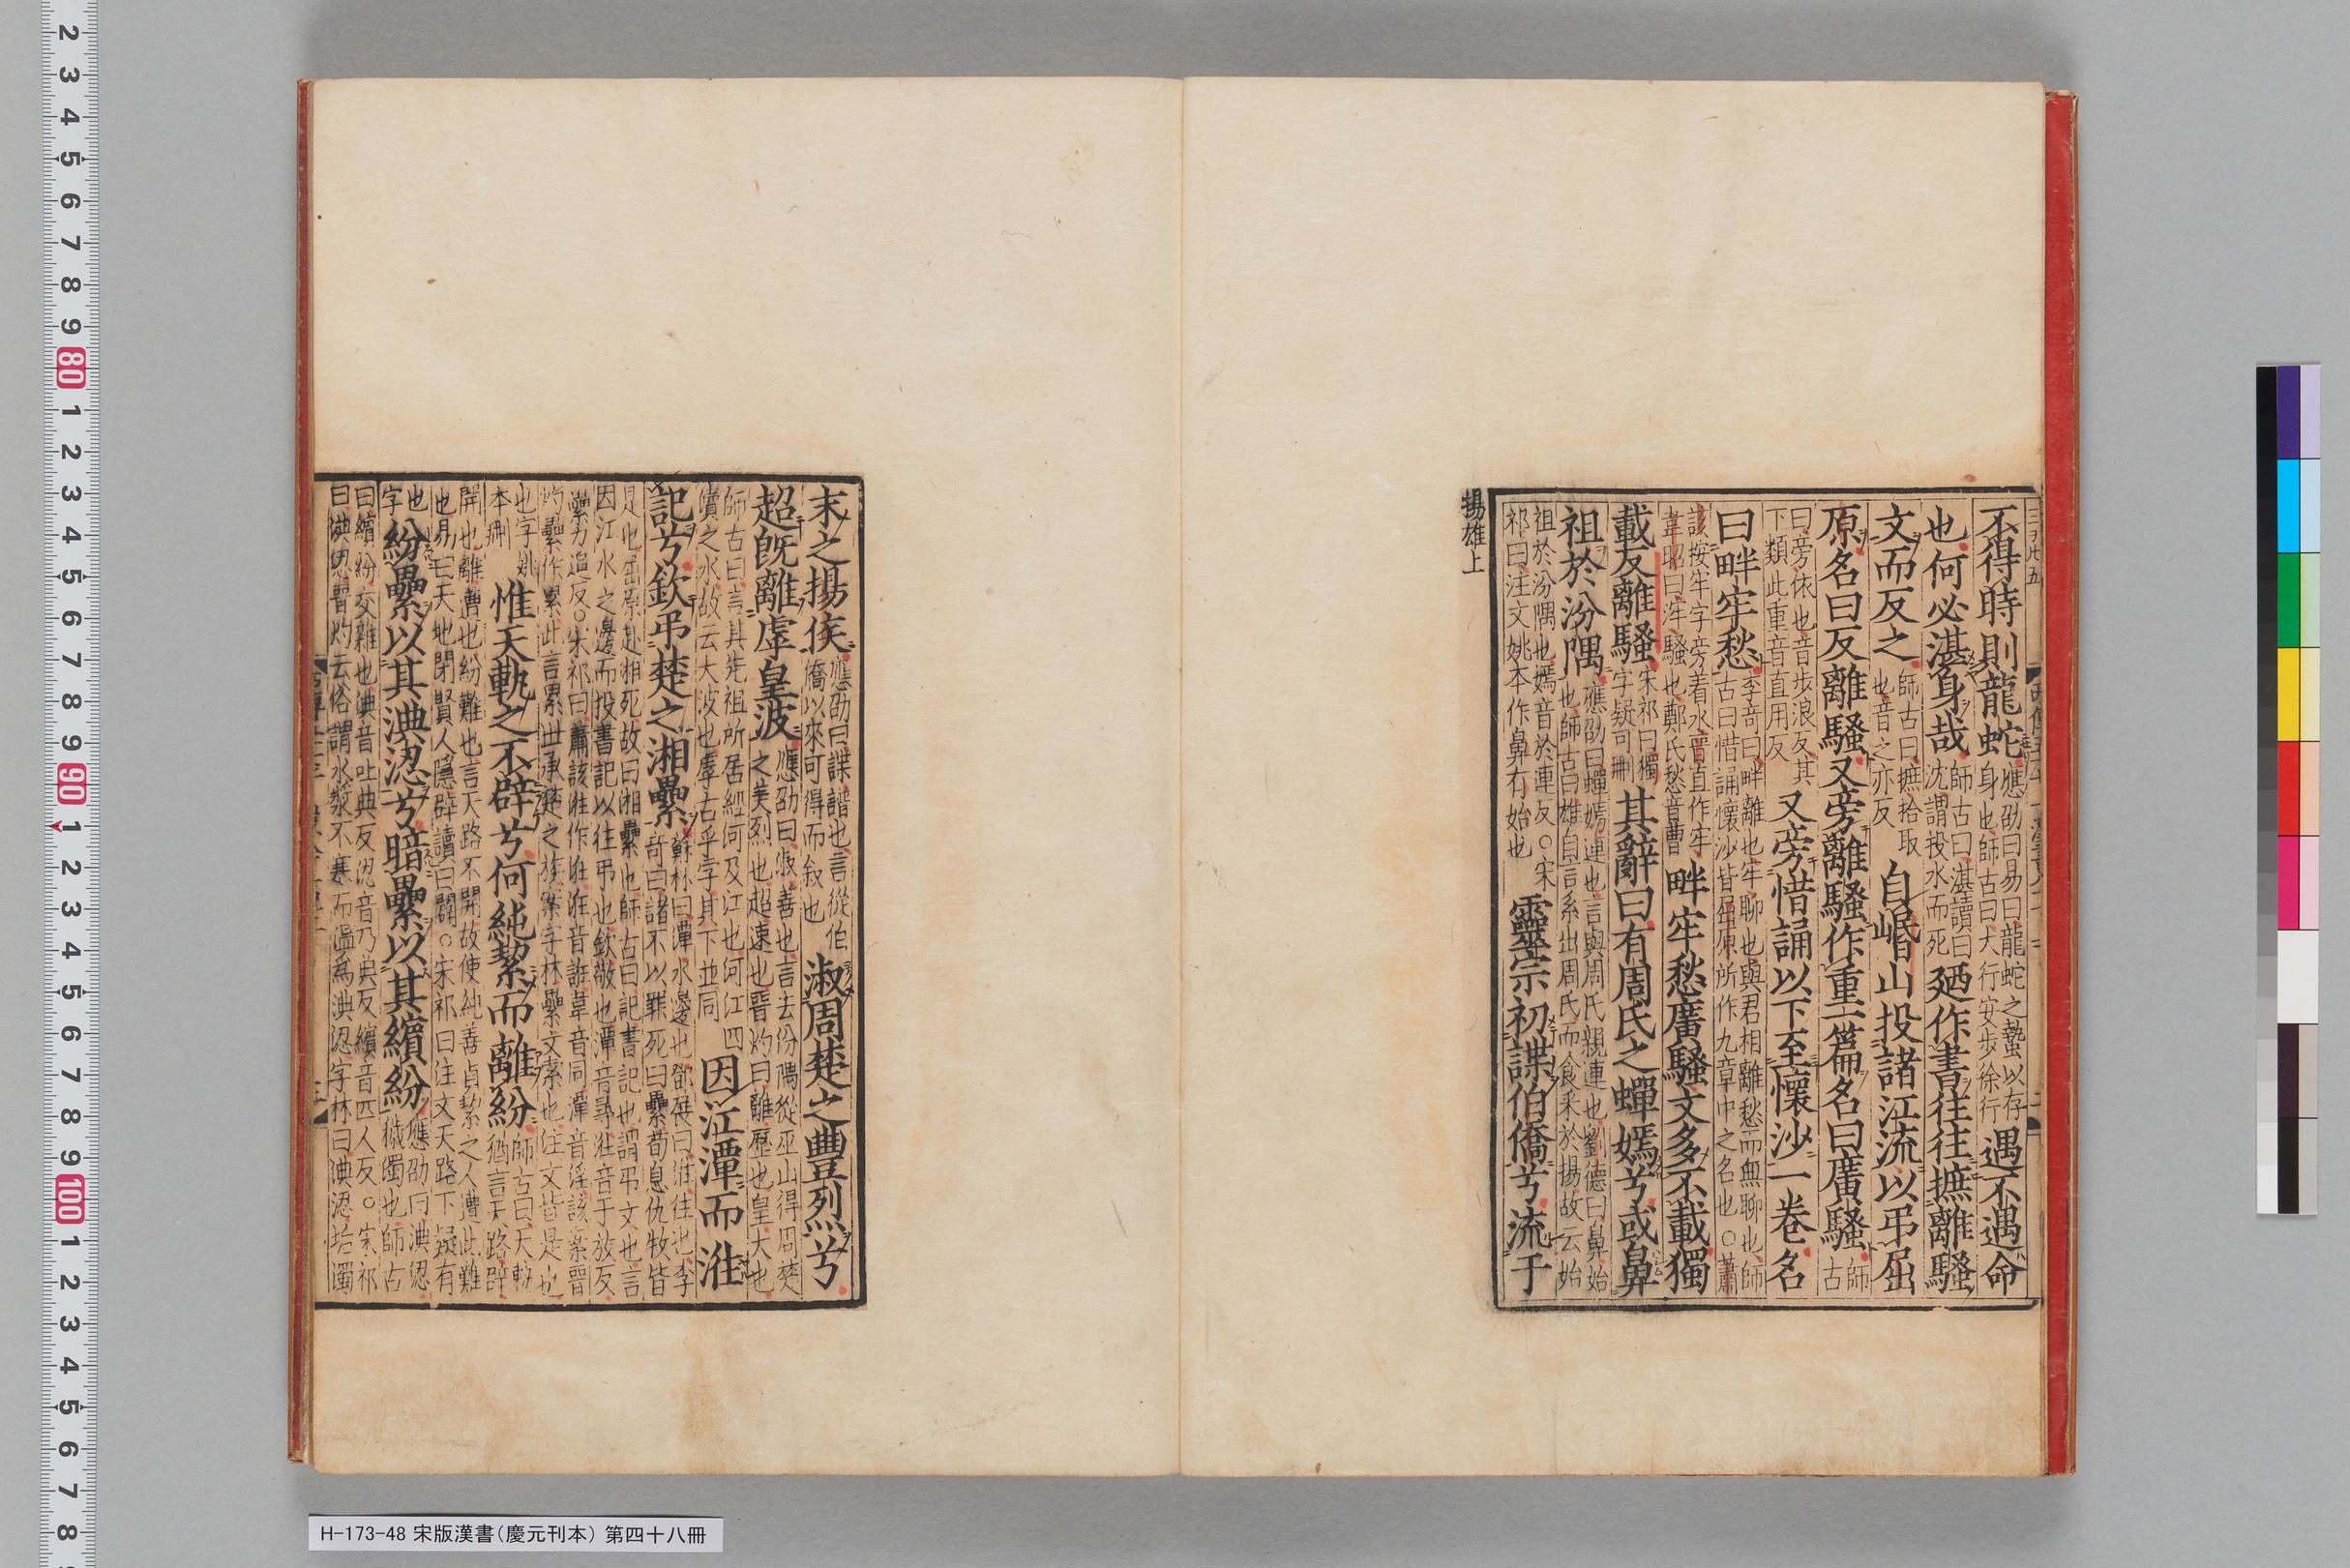 不得時則龍蛇應劭曰易曰龍蛇之蟄以存身也師古曰大行安步徐行遇不遇命
也何必湛身哉師古曰湛讀曰沈謂投水而死廼作書往往摭離騷
文而反之師古曰摭拾取也音之亦反自㟭山投諸江流以弔屈
原名曰反離騷又旁離騷作重一篇名曰廣騷師古
曰旁依也音步浪反其下類此重音直用反又旁惜誦以下至懷沙一卷名
曰畔牢愁李奇曰畔離也牢聊也與君相離愁而無聊也師古曰惜誦懷沙皆屈原所作九章中之名也○蕭
該按牢字旁着水晉直作牢韋昭曰浶騷也鄭氏愁音曹畔牢愁廣騷文多不載獨
載反離騷宋祁曰獨字疑可刪其辭曰有周氏之蟬嫣兮或鼻
祖於汾隅應劭曰蟬嫣連也言與周氏親連也劉德曰鼻始也師古曰雄自言系出周氏而食采於揚故云始
祖於汾隅也嫣音於連反○宋祁曰注文姚本作鼻有始也靈宗初諜伯僑兮流于
揚雄上
末之揚侯應劭曰諜譜也言從伯僑以來可得而叙也淑周楚之豐烈兮
超旣離虖皇波應劭曰淑善也言去汾隅從巫山得周楚之美烈也超速也晉灼曰離歷也皇大也
師古曰言其先祖所居經河及江也河江四瀆之水故云大波也虖古乎字其下並同因江潭而㳰
記兮欽弔楚之湘纍蘇林曰潭水邊也鄧展曰㳰往也李奇曰諸不以罪死曰纍荀息仇牧皆
是也屈原赴湘死故曰湘纍也師古曰記書記也謂弔文也言因江水之邊而投書記以往弔也欽敬也潭音尋㳰音于放反
纍力追反○宋祁曰蕭該㳰作㳰㳰音誑韋音同潭音淫該案晉灼纍作累此言累世承楚之族案字林纍文索也注文皆是也
也字姚本刪惟天軌之不辟兮何純絜而離紛師古曰天軌猶言天路辟
開也離遭也紛難也言天路不開故使純善貞絜之人遭此難也易曰天地閉賢人隱辟讀曰闢○宋祁曰注文天路下疑有
也字紛纍以其淟涊兮暗纍以其繽紛應劭曰淟涊穢濁也師古
曰繽紛交雜也淟音吐典反涊音乃典反繽音匹人反○宋祁曰淟涊晉灼云俗謂水漿不寒而溫爲淟涊字林曰淟涊垢濁
H-173-48 宋版漢書（慶元刊本） 第四十八冊